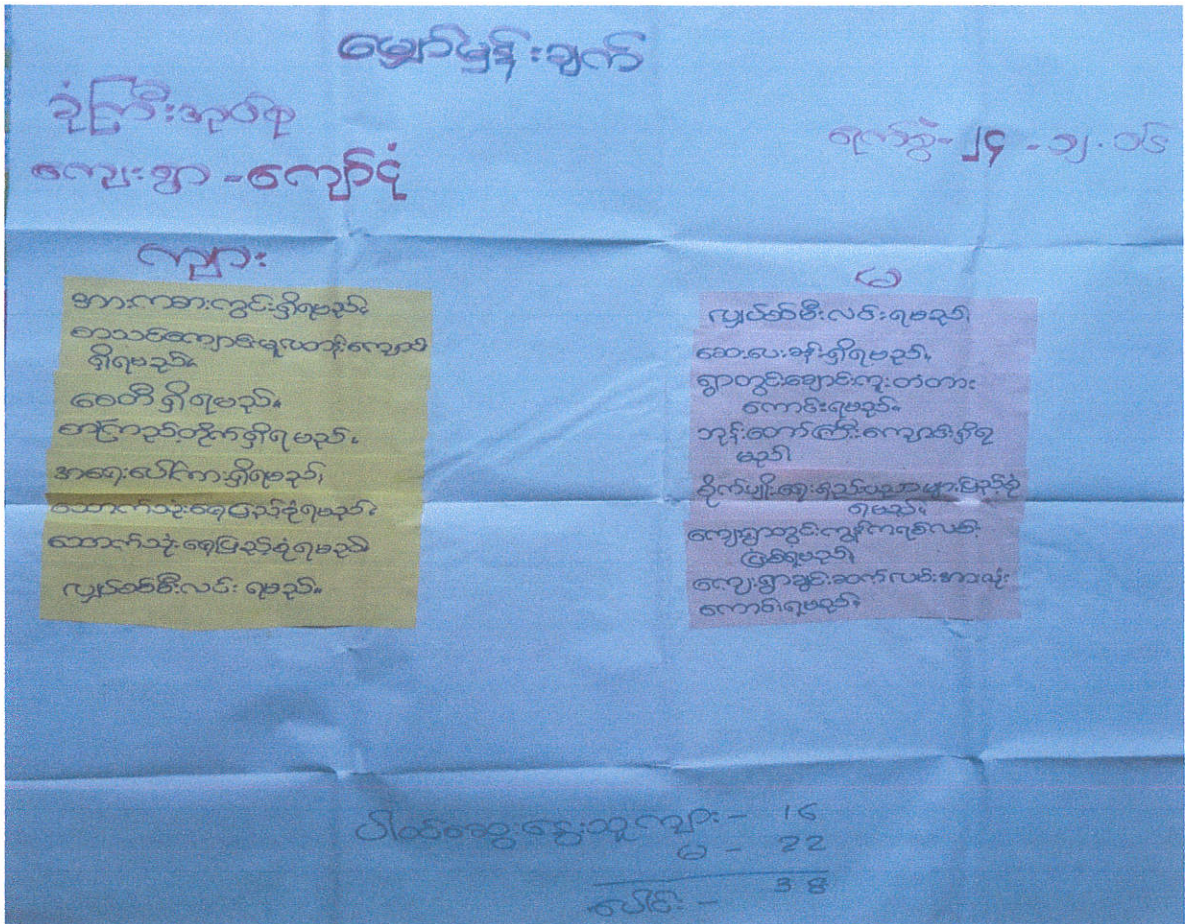 မျှော်မှန်းချက်
ခုံကြီးအုပ်စု
ကျေးရွာ - ကျော်ငုံ
ရက်စွဲ - ၂၄ - ၁၂ . ၁၆
ကျား
အားကစားကွင်းရှိရမည်။
စာသင်ကျောင်းမူလတန်းကျောင်း
ရှိရမည်။
စေတီရှိရမည်။
စာကြည့်တိုက်ရှိရမည်။
အရေးပေါ်ကားရှိရမည်။
သောက်သုံးရေပြည့်စုံရမည်။
သောက်သုံးရေပြည့်စုံရမည်။
လျှပ်စစ်မီးလင်းရမည်။
မ
လျှပ်စစ်မီးလင်းရမည်။
ဆေးပေးခန်းရှိရမည်။
ရွာတွင်းချောင်းကူးတံတား
ကောင်းရမည်။
ဘုန်းတော်ကြီးကျောင်းရှိရ
မည်။
စိုက်ပျိုးရေးနည်းပညာများပြည့်စုံ
ရမည်။
ကျေးရွာတွင်းကွန်ကရစ်လမ်း
ဖြစ်ရမည်။
ကျေးရွာချင်းဆက်လမ်းအားလုံး
ကောင်းရမည်။
ပါဝင်ဆွေးနွေးသူ ကျား - 16
မ - 22
ပေါင်း - 38